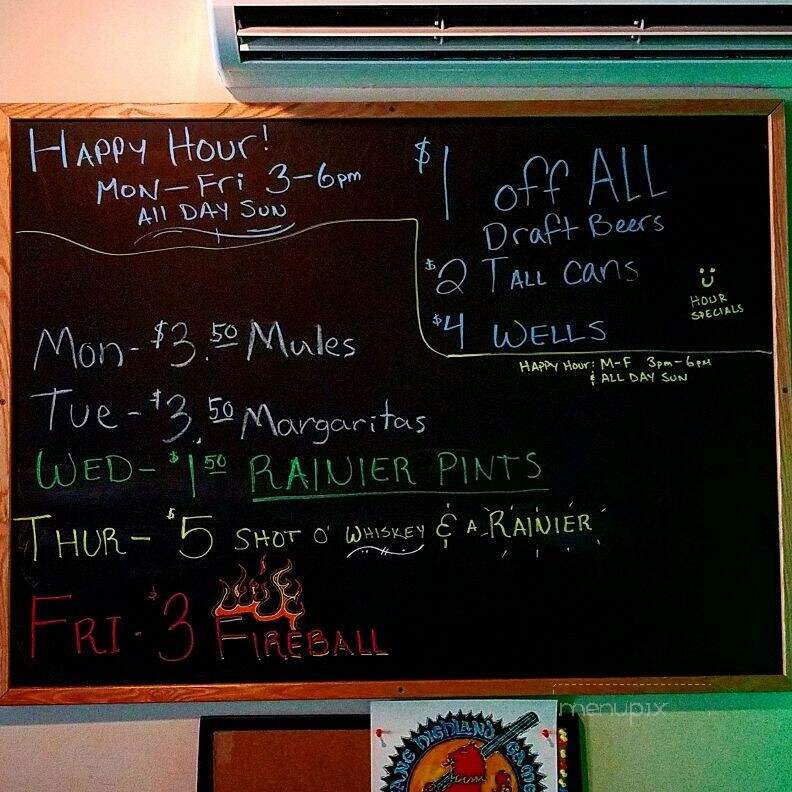 Happy Hour!
Mon-Fri 3-6pm
All Day Sun
$1 off All
Draft Beers
$2 Tall Cans
$4 Wells
Hour
Specials
Happy Hour: M-F 3pm-6pm
& All Day Sun
Mon- $3.50 Mules
Tue- $3.50 Margaritas
Wed- $1 50 Rainier Pints
Thur- $5 Shot o' Whiskey & a Rainier
Fri- $3 Fireball
menupix
Highland Game